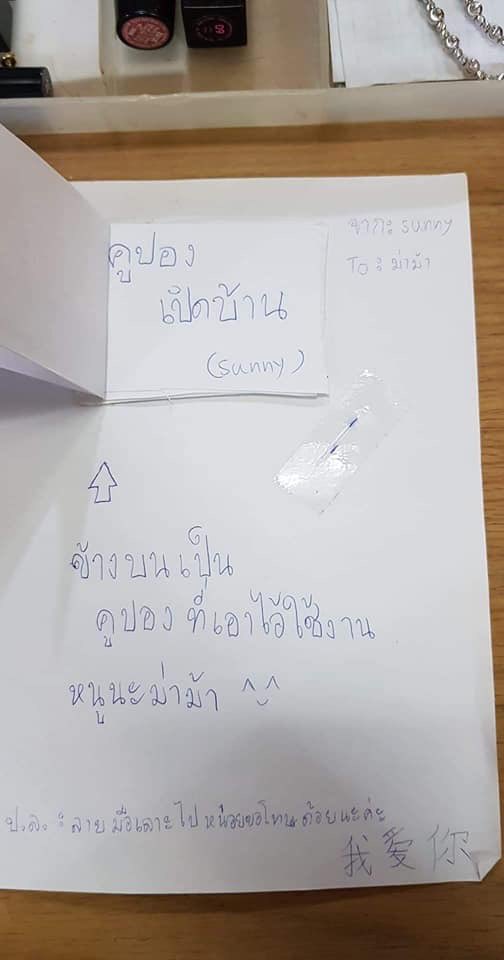 จาก: sunny
To: ม่าม้า
คูปอง
เปิดบ้าน
(sunny)
ข้างบนเป็น
คูปองที่เอาไว้ใช้งาน
หนูนะม่าม้า ^_^
ป.ล. : ลายมือเลาะไปหน่อยขอโทษด้วยนะค่ะ
我爱你